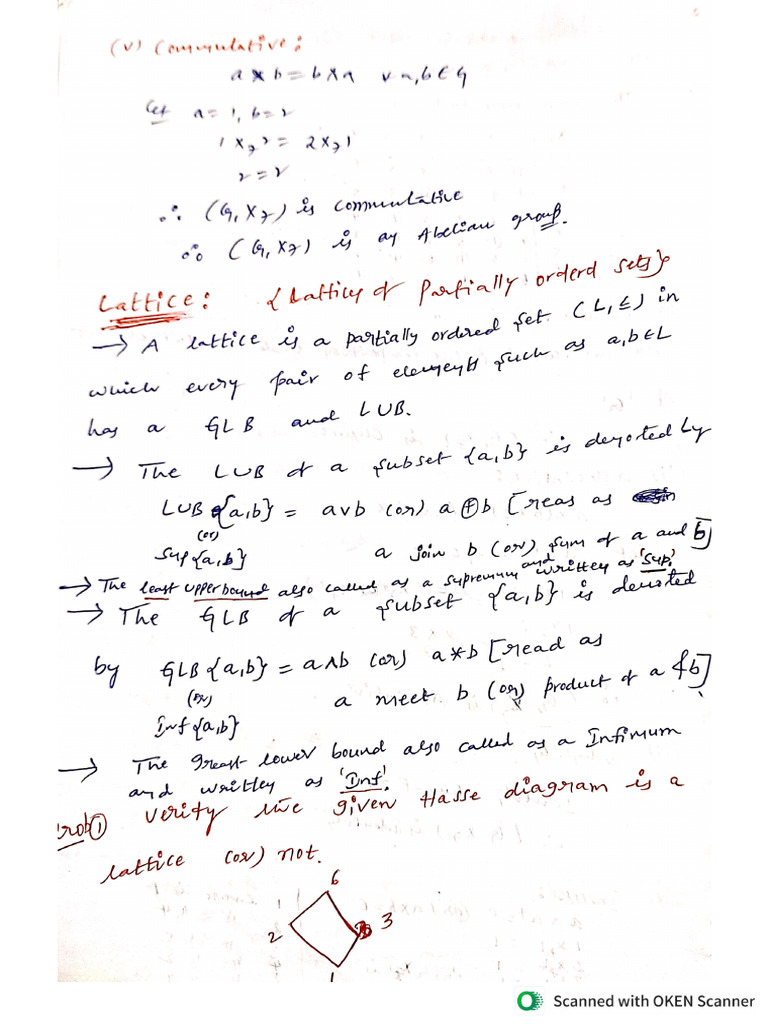 (v) Commutative:
a * b = b * a ∀ a,b ∈ G
Let a = 1, b = 2
1 ×7 2 = 2 ×7 1
2 = 2
∴ (G, ×7) is commutative
∴ (G, ×7) is an Abelian group.
Lattice: {Lattices of Partially orderd sets}
→ A lattice is a partially ordered set (L, ≤) in
which every pair of elements such as a,b ∈ L
has a GLB and LUB.
→ The LUB of a subset {a,b} is denoted by
LUB {a,b} = a∨b (or) a ⊕ b [reas as
(or)
Sup {a,b} a join b (or) sum of a and b]
→ The least upper bound also called as a supremum and written as 'Sup.'
→ The GLB of a subset {a,b} is denoted
by GLB {a,b} = a∧b (or) a * b [read as
(or)
Inf {a,b} a meet b (or) product of a & b]
→ The great lower bound also called as a Infimum
and written as 'Inf'.
Prob ① Verify the given Hasse diagram is a
lattice (or) not.
6
2 3
1
Scanned with OKEN Scanner